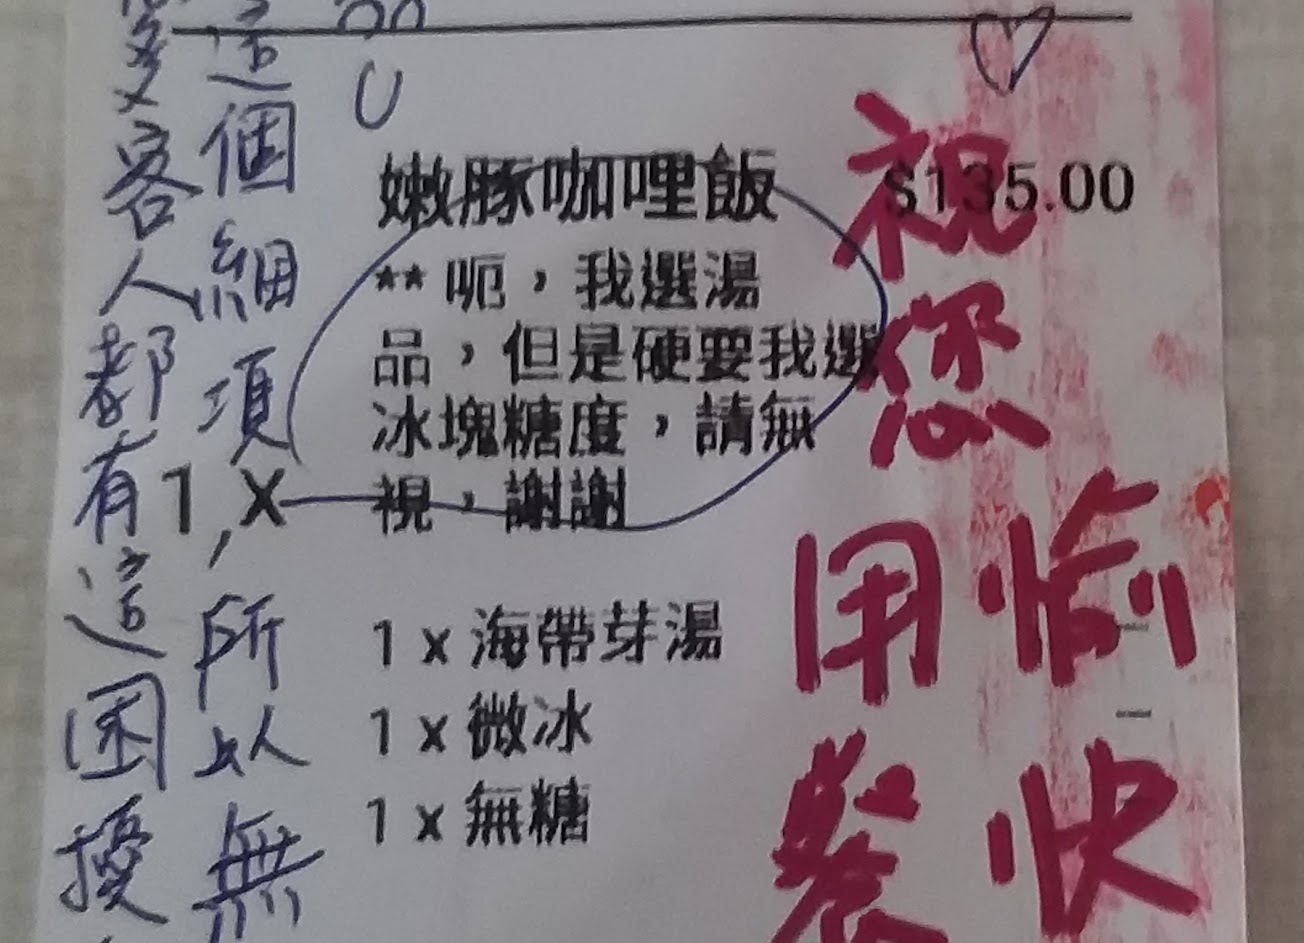 嫩豚咖哩飯 $135.00
** 呃，我選湯
品，但是硬要我選
冰塊糖度，請無
視，謝謝
1 x
1 x 海帶芽湯
1 x 微冰
1 x 無糖
祝您
用餐
愉快
這個細項，所以無
客人都有這困擾